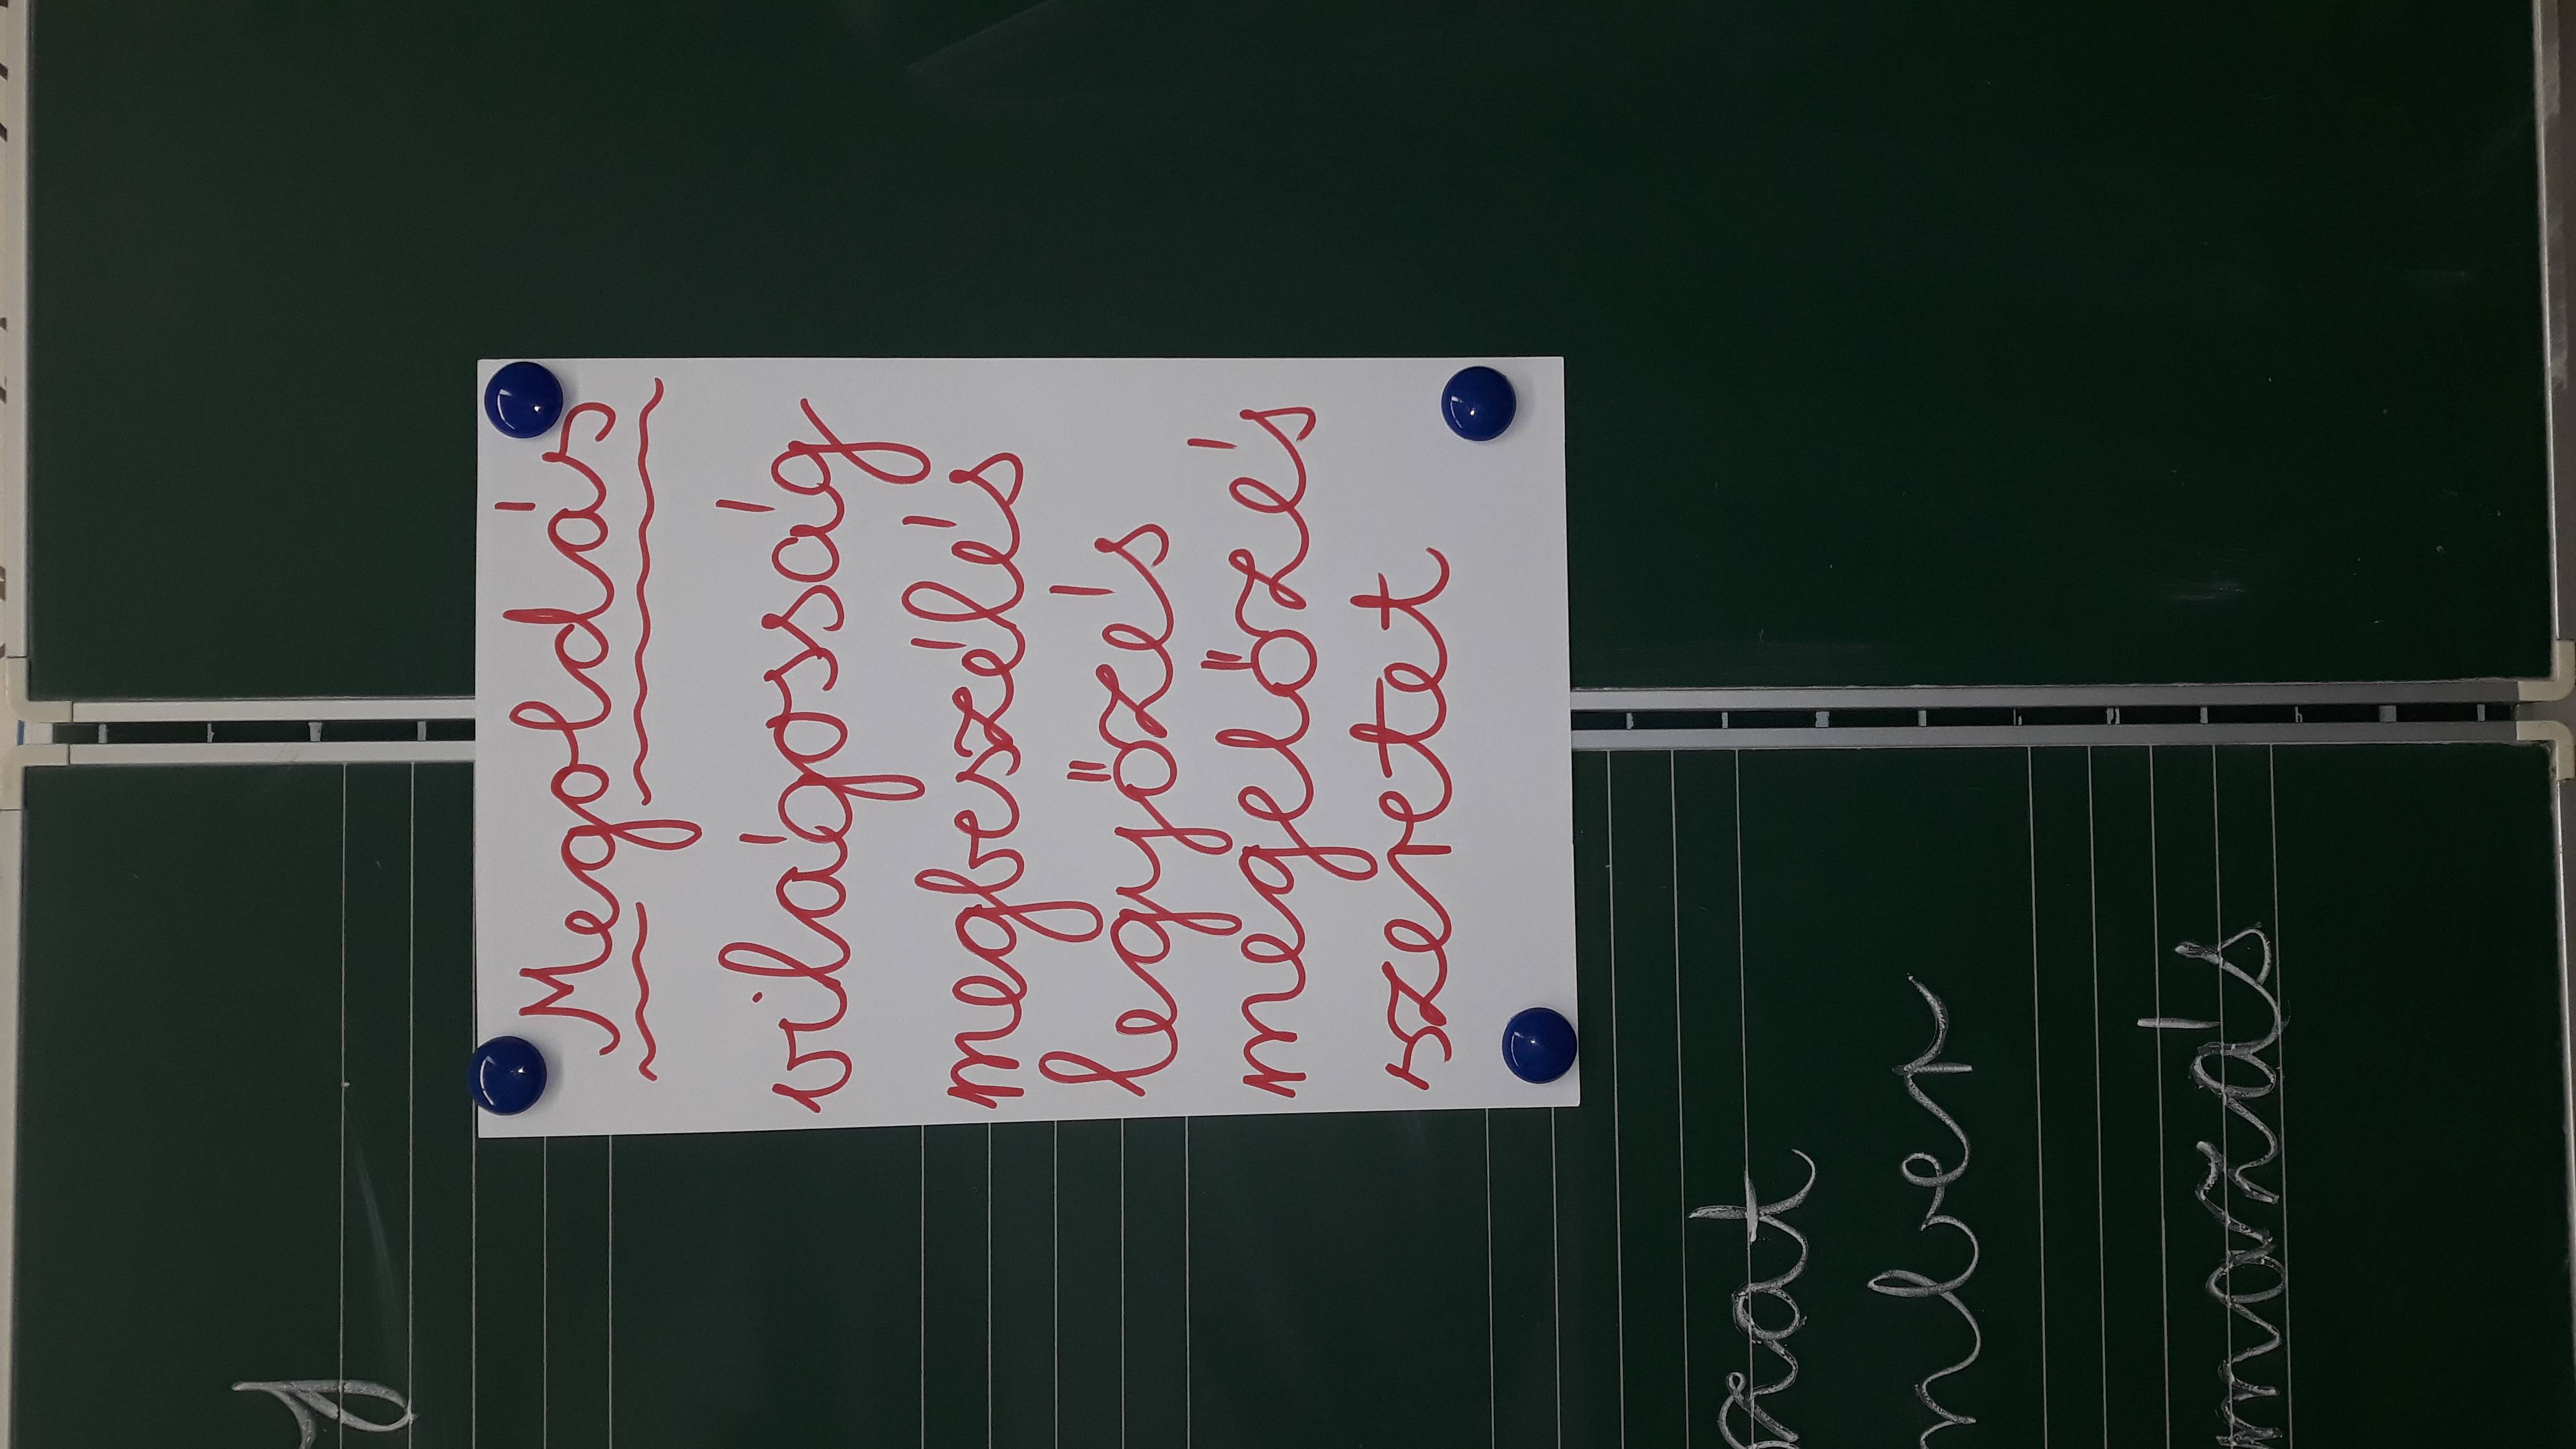 Megoldás
világosság
megbeszélés
legyőzés
megelőzés
szeretet